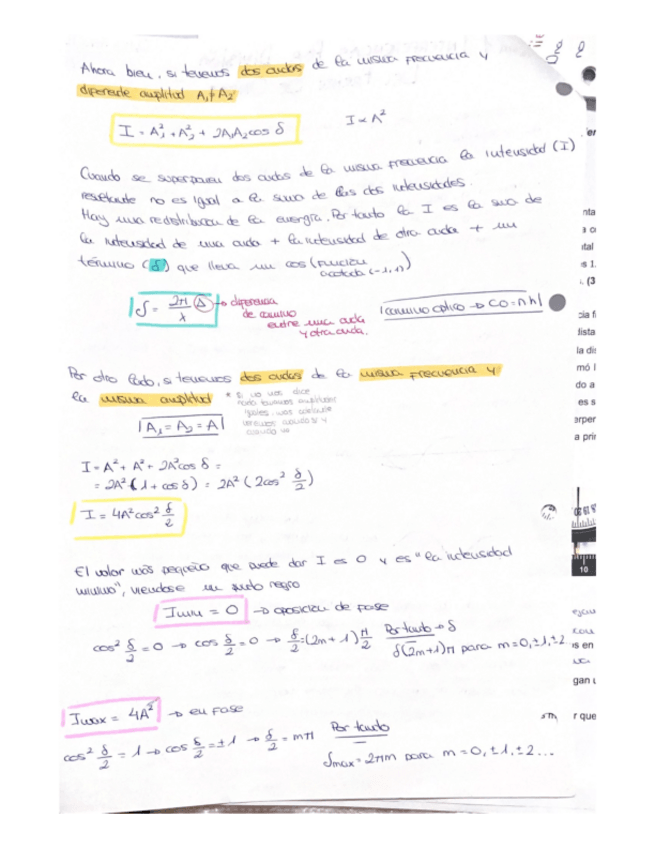 Ahora bien, si tenemos dos ondas de la misma frecuencia y
diferente amplitud A₁≠A₂
I = A₁² + A₂² + 2A₁A₂cos δ
I ∝ A²
Cuando se superponen dos ondas de la misma frecuencia la intensidad (I)
resultante no es igual a la suma de las dos intensidades.
Hay una redistribución de la energía. Por tanto la I es la suma de
la intensidad de una onda + la intensidad de otra onda + un
término (δ) que lleva un cos (función
acotada (-1,1))
δ = 2π/λ Δ → diferencia
de camino
entre una onda
y otra onda.
camino óptico → CO = n h
Por otro lado, si tenemos dos ondas de la misma frecuencia y
la misma amplitud
* Si no nos dice
nada tomamos amplitudes
A₁ = A₂ = A
I = A² + A² + 2A²cos δ =
= 2A² (1 + cos δ) = 2A² (2cos² δ/2)
I = 4A²cos² δ/2
El valor más pequeño que puede dar I es 0 y es "la intensidad
mínima", viéndose un punto negro
Imin = 0 → oposición de fase
cos² δ/2 = 0 → cos δ/2 = 0 → δ/2 = (2m + 1) π/2 Por tanto → δ
δ(2m+1)π para m = 0, ±1, ±2
Imax = 4A² → en fase
cos² δ/2 = 1 → cos δ/2 = ±1 → δ/2 = mπ
Por tanto
δmax = 2πm para m = 0, ±1, ±2 ...
nta
s 1.
. (3
cia f
fista
la di
mó l
do a
es s
erper
a pri
10
s en
gan u
r que